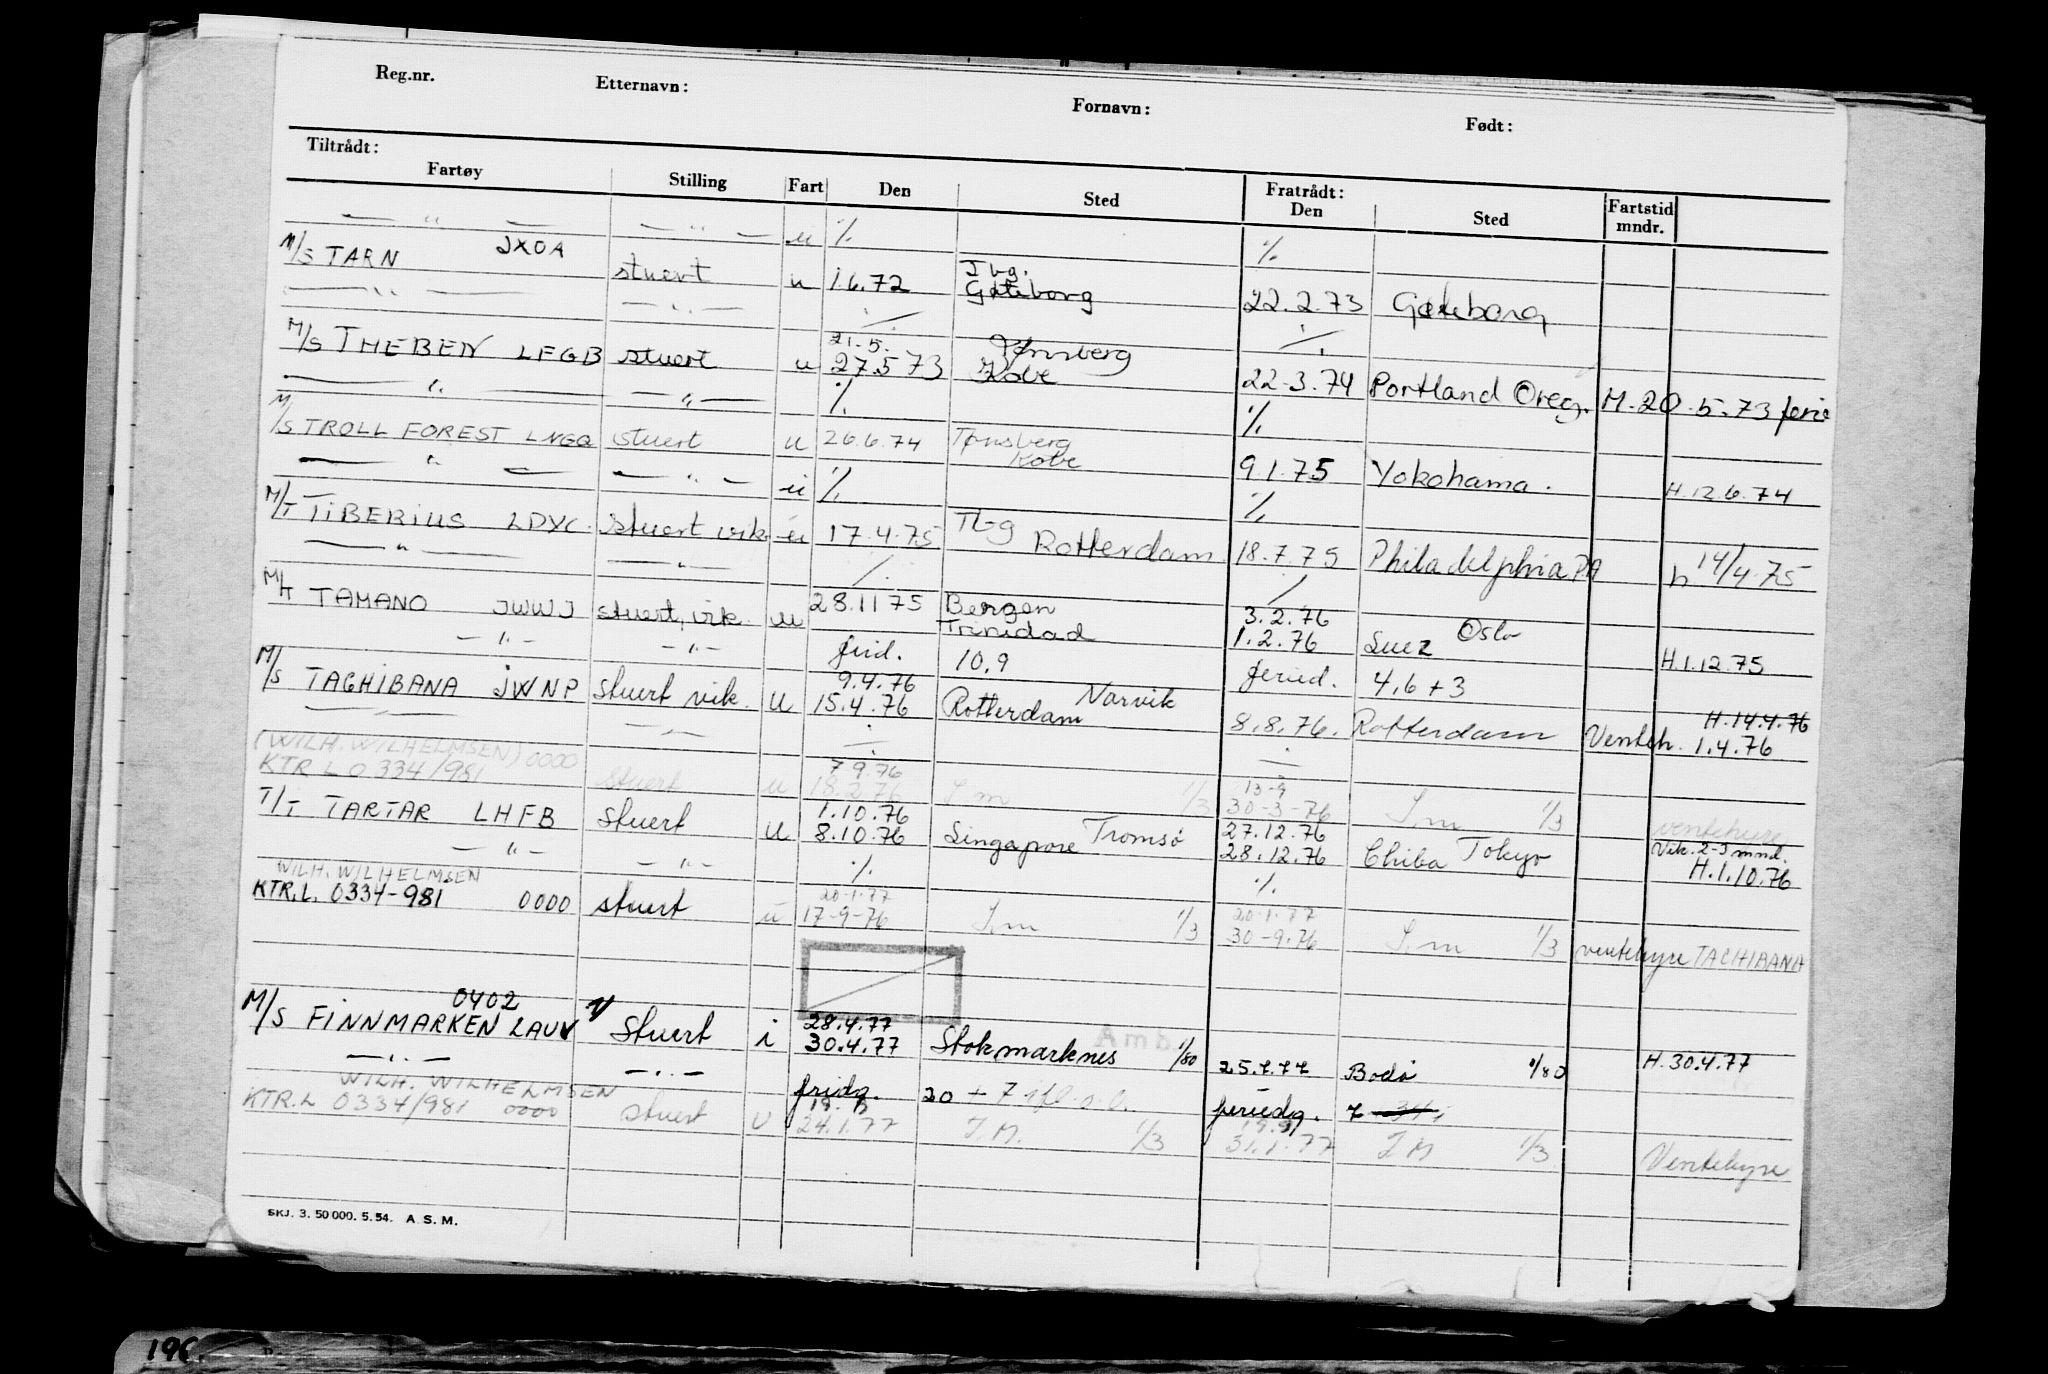 Reg.nr. Etternavn: Fornavn: Født:
Tiltrådt: Fratrådt:
Fartøy Stilling Fart Den Sted Den Sted Fartstid mndr.
— " — — " — u % %
M/S TARN JXOA stuert u 1.6.72 Tbg. Gøteborg 22.2.73 Gøteborg
— " — — " — ./. ./.
M/S THEBEN LFGB stuert u 21.5. 27.5 73 Tønsberg Kobe 22-3.74 Portland Oreg. M.20.5.73 ferie
— " — — " — % %
M/S TROLL FOREST LNGQ stuert u 26.6.74 Tønsberg Kobe 9.1.75 Yokohama. H.12.6.74
— " — — " — u % %
M/T TIBERIUS LDYC. stuert vik u 17.4.75 Tbg Rotterdam 18.7.75 Philadelphia PA h 14/4.75
— " — — " — ./. ./.
M/T TAMANO JWWJ stuert, vik. u 28.11 75 Bergen Trinidad 3.2.76 1.2.76 Oslo Suez H.1.12.75
— " — — " — frid. 10.9 feried. 4,6+3
M/S TACHIBANA JWNP stuert vik. u 9.4.76 15.4.76 Narvik Rotterdam 8.8.76. Rotterdam Venteh. H.14.4.76 1.4.76
— " — — " — ./. ./.
(WILH. WILHELMSEN) 0000
KTR L 0334/981 stuert u 7 9.76 18.2.76 S.m 1/3 13-9 30-3-76 S.m 1/3 ventehyre
T/T TARTAR LHFB stuert u 1.10.76 8.10.76 Singapore Tromsø 27.12.76 28.12.76 Chiba Tokyo Vik. 2-3 mnd. H.1.10.76
— " — — " — % %
WILH. WILHELMSEN
KTR.L. 0334-981 0000 stuert u 20-1-77 17-9-76 S.m 1/3 20-1-77 30-9.76 S.m 1/3 ventehyre TACHIBANA
0402
M/S FINNMARKEN LAUV Stuert i 28.4.77 30.4.77 Stokmarknes 1/80 25.7.77 Bodø 1/80 H.30.4.77
Amb.
— " — — " — fridg. 20 + 7 feriedg. 7
WILH. WILHELMSEN
KTR.L 0334/981 0000 stuert U 24.1.77 S.M. 1/3 31.1.77 S.M 1/3 Ventehyre
SKJ. 3. 50 000. 5. 54. A. S. M.
196